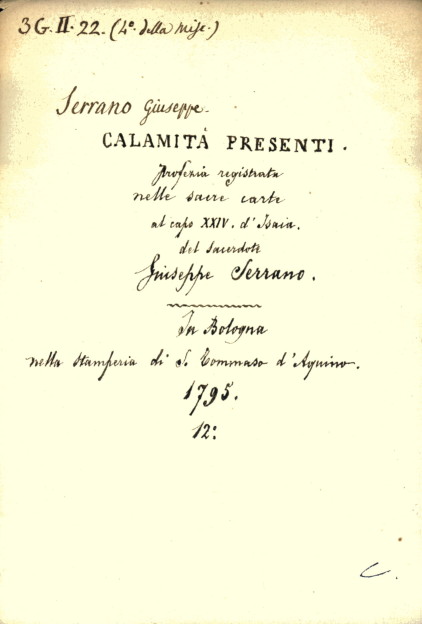 3 G. II. 22. (4º. della Misc.)
Serrano Giuseppe.
CALAMITÁ PRESENTI.
profezia registrata
nelle sacre carte
al capo XXIV. d'Isaia.
del Sacerdote
Giuseppe Serrano.
In Bologna
nella Stamperia di S. Tommaso d'Aquino.
1795.
12º.
C.